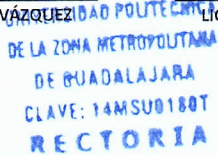 VÁZQUEZ
UNIVERSIDAD POLITECNICA
DE LA ZONA METROPOLITANA
DE GUADALAJARA
CLAVE: 14MSU0180T
RECTORIA